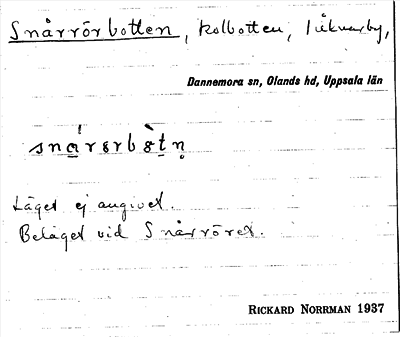 Snårrörbotten, kolbotten,
Dannemora sn, Olands hd, Uppsala län
Läget ej angivet.
Beläget vid Snårröret.
RICKARD NORRMAN 1937